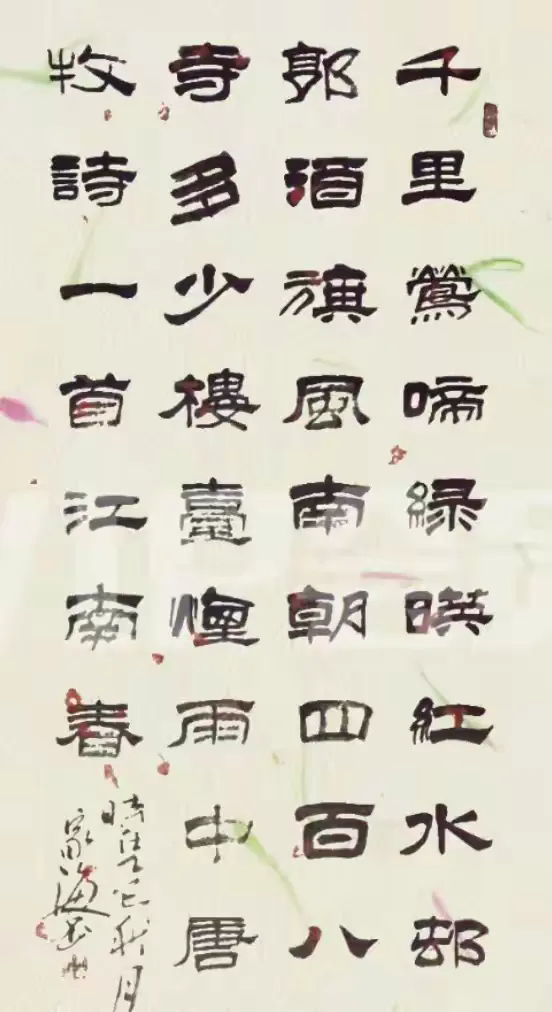 千里鶯啼緑暎紅水邨
郭酒旗風南朝四百八
寺多少樓臺煙雨中唐
牧詩一首江南春
時在乙巳秋月
家海書